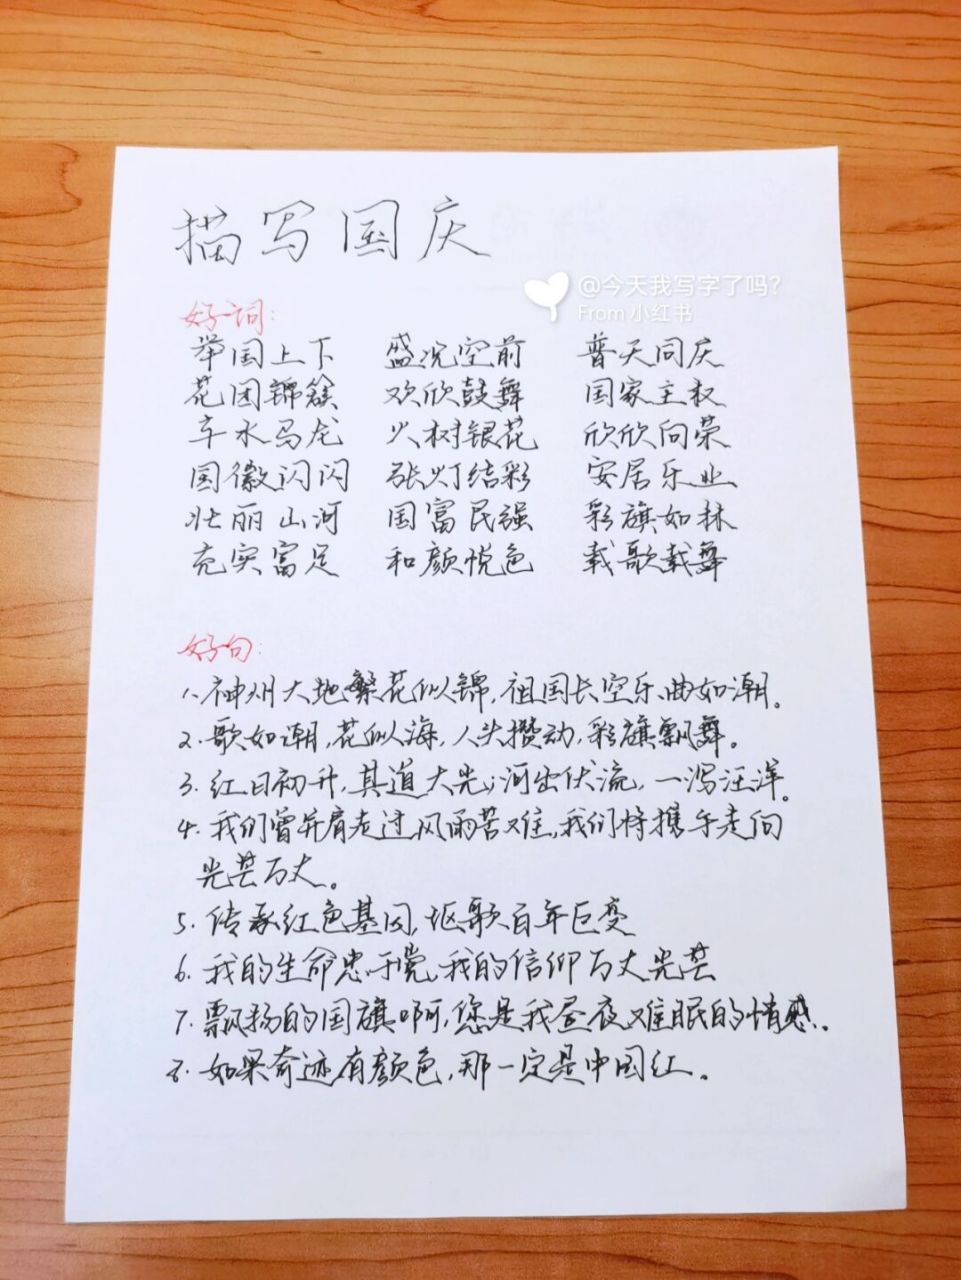 描写国庆
@今天我写字了吗?
From 小红书
好词:
举国上下 盛况空前 普天同庆
花团锦簇 欢欣鼓舞 国家主权
车水马龙 火树银花 欣欣向荣
国徽闪闪 张灯结彩 安居乐业
壮丽山河 国富民强 彩旗如林
充实富足 和颜悦色 载歌载舞
好句:
1、神州大地繁花似锦,祖国长空乐曲如潮。
2、歌如潮,花似海,人头攒动,彩旗飘舞。
3、红日初升,其道大光;河出伏流,一泻汪洋。
4、我们曾并肩走过风雨苦难,我们将携手走向
光芒万丈。
5、传承红色基因,讴歌百年巨变
6、我的生命忠于党,我的信仰万丈光芒
7、飘扬的国旗啊,您是我昼夜难眠的情感。
8、如果奇迹有颜色,那一定是中国红。